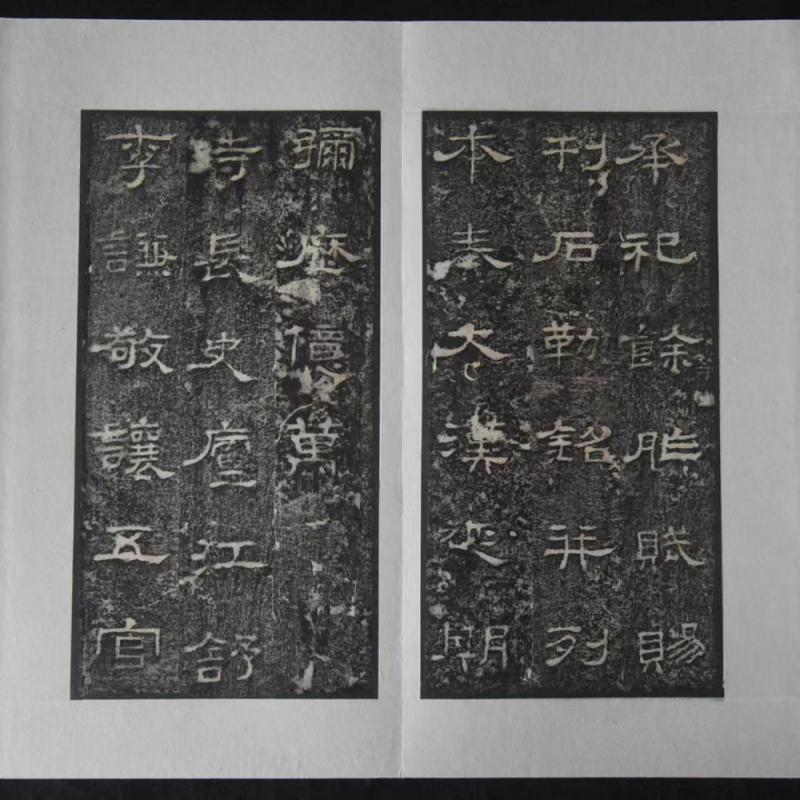 承祀餘胙賦賜
刊石勒銘并列
本奏大漢延期
彌歷億萬
時長史廬江舒
李謙敬讓五官